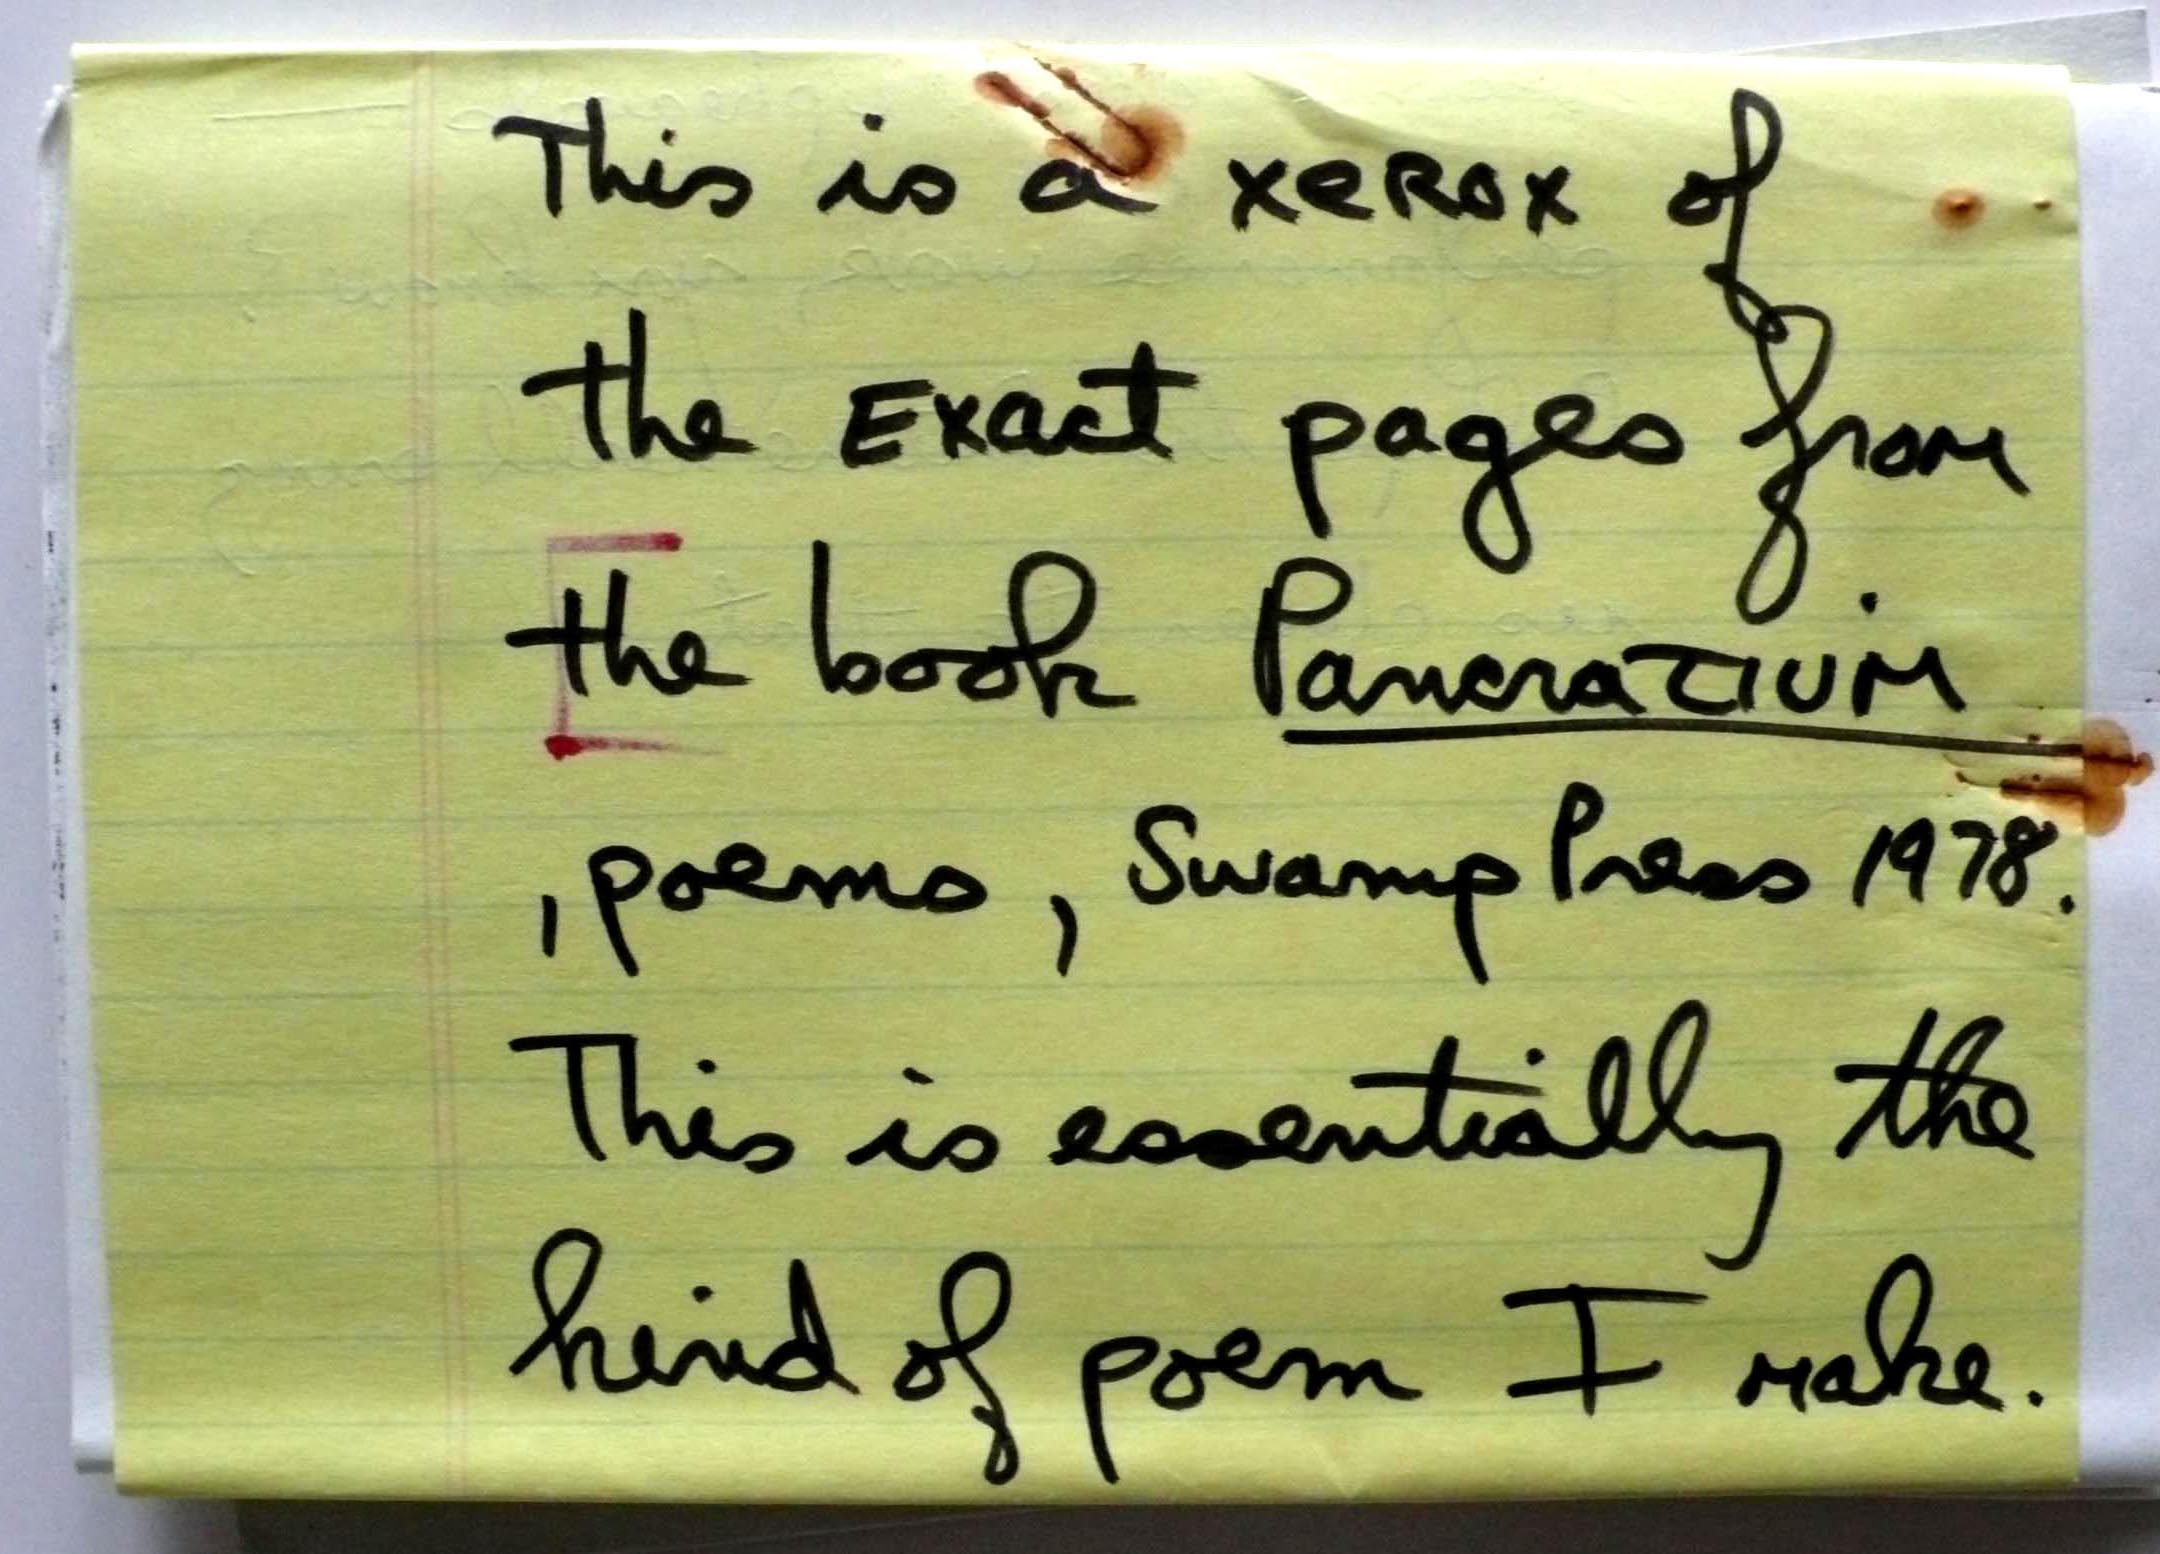 This is a xerox of
the Exact pages from
the book Pancratium
, poems, Swamp Press 1978.
This is essentially the
kind of poem I make.